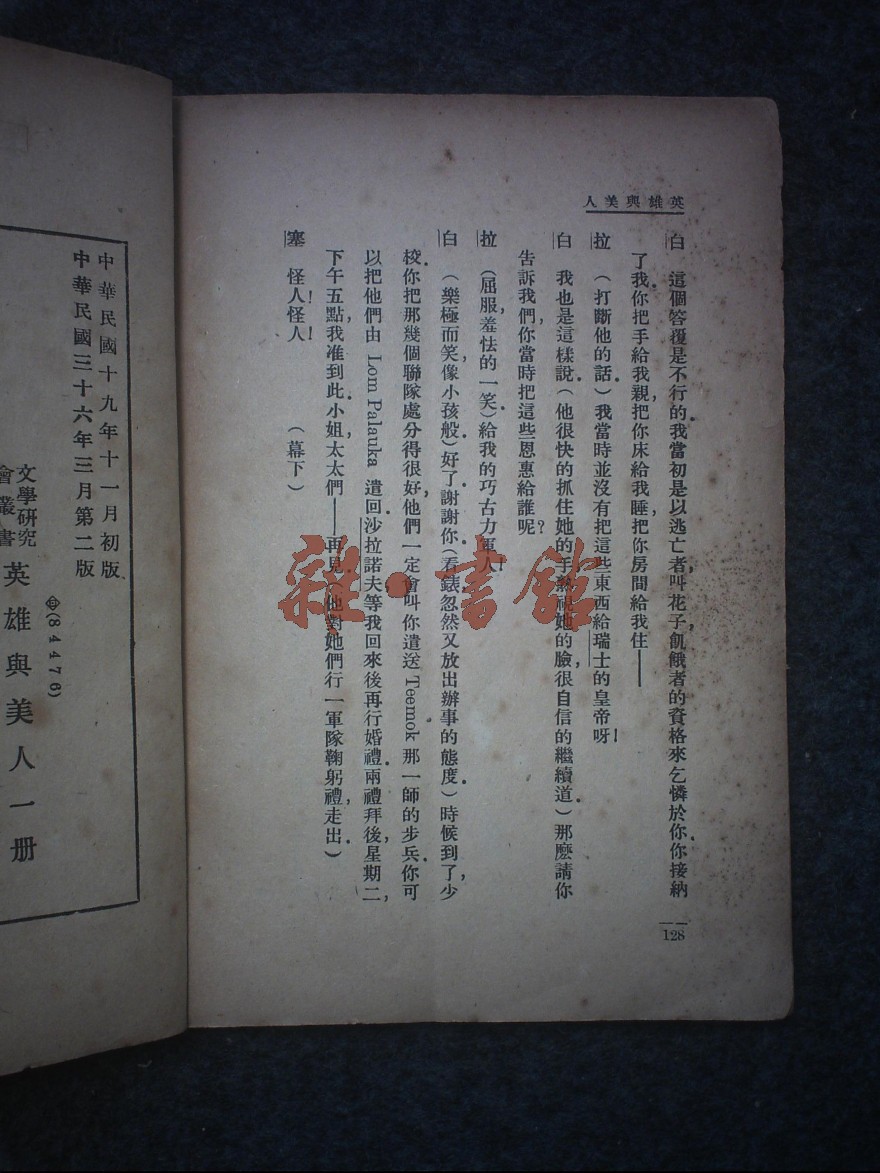 英雄與美人
白 這個答覆是不行的。我當初是以逃亡者，叫花子，飢餓者的資格來乞憐於你。你接納
了我，你把手給我親，把你床給我睡，把你房間給我住——
拉 （打斷他的話。）我當時並沒有把這些東西給瑞士的皇帝呀！
白 我也是這樣說。（他很快的抓住她的手，熱視她的臉，很自信的繼續道。）那麼，請你
告訴我們，你當時把這些恩惠給誰呢？
拉 （屈服，羞怯的一笑。）給我的巧古力軍人！
白 （樂極而笑，像小孩般。）好了。謝謝你。（看錶，忽然又放出辦事的態度。）時候到了，少
校。你把那幾個聯隊處分得很好，他們一定會叫你遣送 Teemok 那一師的步兵。你可
以把他們由 Lom Palauka 遣回。沙拉諾夫，等我回來後再行婚禮。兩禮拜後，星期二，
下午五點，我准到此。小姐太太們——再見。（他對她們行一軍隊鞠躬禮，走出。）
塞 怪人！怪人！
（幕下）
128
中華民國十九年十一月初版
中華民國三十六年三月第二版
(84476)
文學研究
會叢書
英雄與美人一册
雜·書館